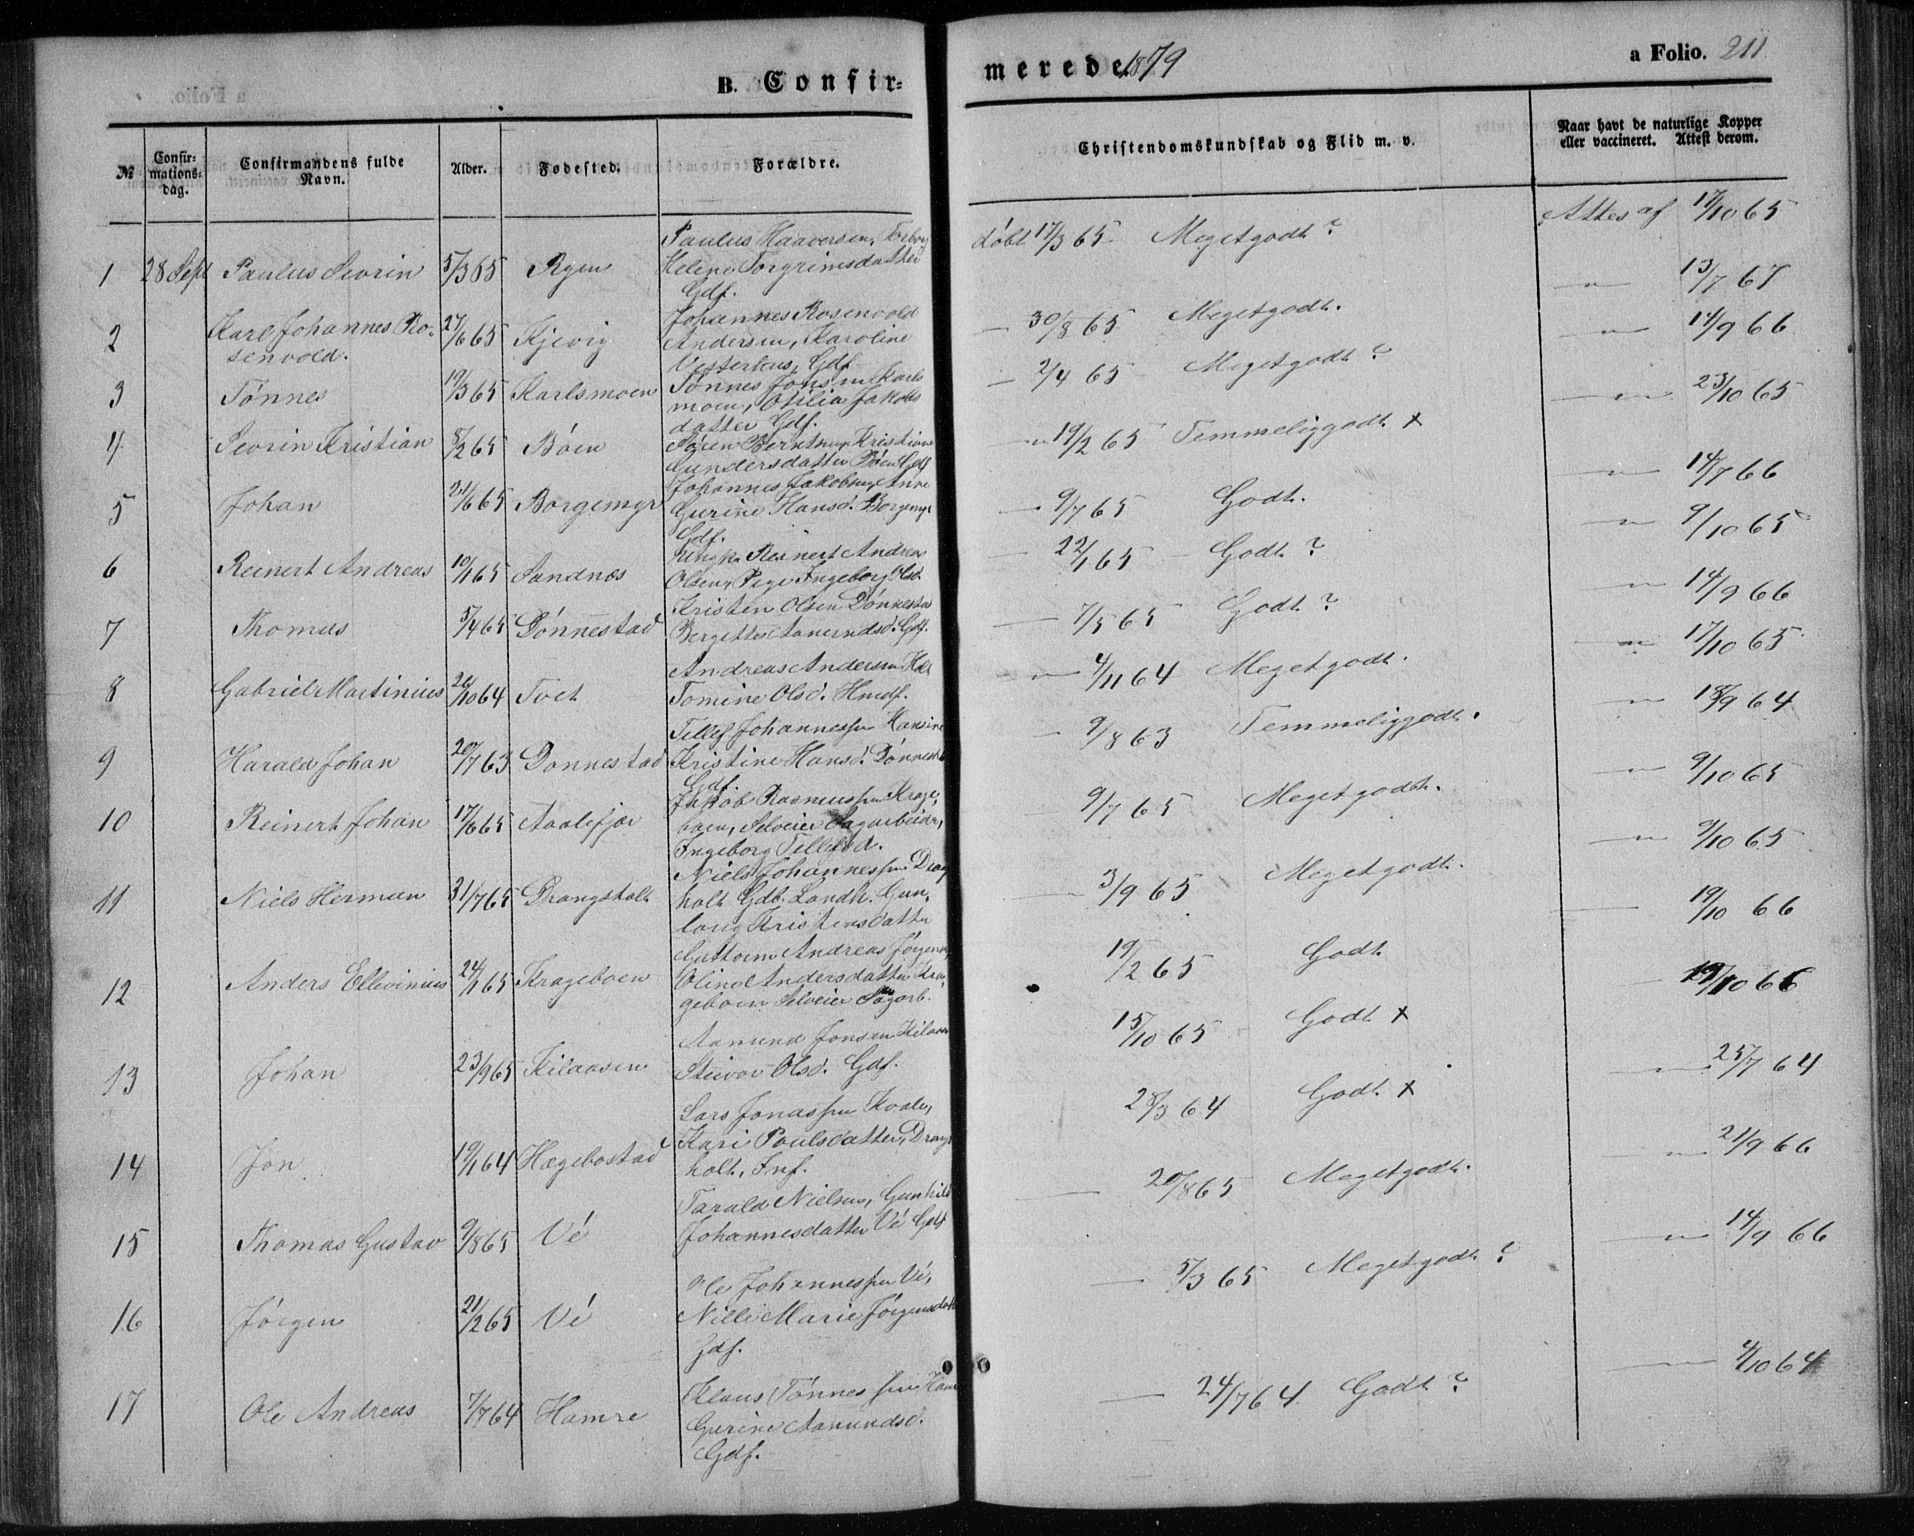 B. Confir=
merede 1879
a Folio. 211.
№ Confir=mations=dag. Confirmandens fulde Navn. Alder. Fødested. Forældre. Christendomskundskab og Flid m. v. Naar havt de naturlige Kopper eller vaccineret. Attest derom.
Paulus Haaversen, Torborg
1 28 Sept Paulus Sevrin 5/3 65 Rygen Helene Torgrimsdatter døbt 17/3 65 Meget godt? Attes af 17/10 65
Gdf.
Johannes Rosenvold
2 Karl Johannes Ro- 27/6 65 Kjevig Andersen, Karoline — 30/8 65 Meget godt. — 13/7 67
senvold. Gdf
3 Tønnes 19/3 65 Karlsmoen Tønnes Jonsen Karls — 2/4 65 Meget godt? — 14/9 66
moen, Otilia Jakobs
datter Gdf.
4 Sevrin Kristian 8/2 65 Bøen Søren Berntsen, Kristiane — 19/2 65 Temmelig godt x — 23/10 65
Gundersdatter Bøen Gdf
Johannes Jakobsen, Anne
5 Johan 21/6 65 Borgemyr Gurine Hansd. Borgemyr — 9/7 65 Godt. — 14/7 66
Gdf.
Ungk. Reinert Andreas
6 Reinert Andreas 10/1 65 Sandnes Olsen, Pige Ingeborg Olsd. — 22/1 65 Godt? — 9/10 65
Kristen Olsen Dønnestad
7 Thomas 5/4 65 Dønnestad Bergitte Aanendsd. Gdf. — 7/5 65 Godt? — 14/9 66
Andreas Andersen
8 Gabriel Martinius 26/10 64 Tvet Tomine Olsd. Husmf. — 4/11 64 Meget godt. — 17/10 65
Tellef Johannessen Hansine
9 Harald Johan 20/7 63 Dønnestad Kristine Hansd. Dønnestad — 9/8 63 Temmelig godt. — 18/9 64
Gdf.
Jakob Rasmussen Krage-
10 Reinert Johan 17/6 65 Aalefjær boen, Selveier Sagarbeider, — 9/7 65 Meget godt. — 9/10 65
Ingeborg Tellefsd.
Niels Johannessen Drang
11 Niels Herman 31/7 65 Drangsholt holt Gdb. Landh. Gun- — 3/9 65 Meget godt. — 9/10 65
borg Kristensdatter
Guttorm Andreas Jørgensen
12 Anders Ellevinius 24/1 65 Krageboen Oline Andersdatter Kra- 19/2 65 Godt — 19/10 66
geboen Selveier Sagarb.
Aanund Jonsen Kilaasen
13 Johan 23/9 65 Kilaasen Steivor Olsd. Gdf. 15/10 65 Godt x — 19/10 66
Lars Jonassen Kvale,
14 Jon 19/1 64 Hægebostad Kari Paulsdatter, Drangs 28/3 64 Godt x — 25/7 64
holt, Inf.
Tarald Nielsen, Gunhild
15 Thomas Gustav 9/8 65 Vé Johannesdatter Vé Gdf — 20/8 65 Meget godt. — 21/9 66
Ole Johannessen Vé,
16 Jørgen 21/2 65 Vé Nille Marie Jørgensdatter — 5/3 65 Meget godt? — 14/9 66
Gdf.
Klaus Tønnessen Hamre
17 Ole Andreas 7/7 64 Hamre Gurine Aanundsd. — 24/7 64 Godt? — 4/10 64
Gdf.